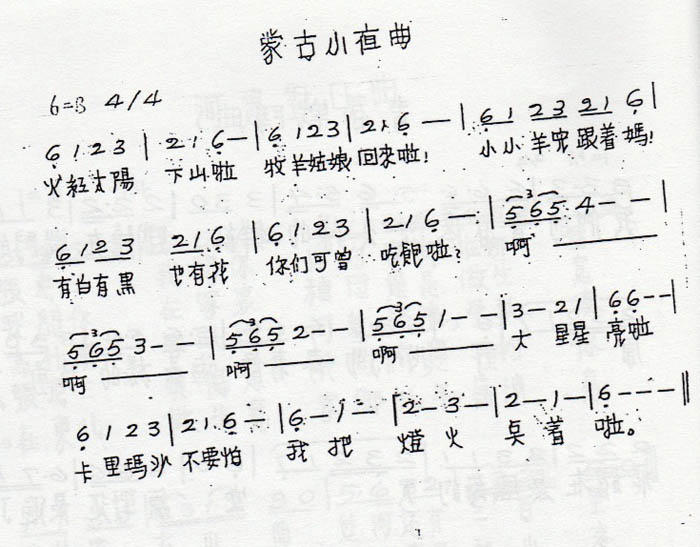 蒙古小夜曲
6=B 4/4
6 1 2 3 | 2 1 6 — | 6 1 2 3 | 2 1 6 — — | 6 1 2 3 2 1 6 |
火紅太陽 下山啦 牧羊姑娘 回來啦! 小小羊兒跟着媽!
6 1 2 3 2 1 6 | 6 1 2 3 | 2 1 6 — | 5 6 5 4 — — |
有白有黑 也有花 你们可曾 吃飽啦? 啊
5 6 5 3 — — | 5 6 5 2 — — | 5 6 5 1 — — | 3 — 2 1 | 6 6 — — |
啊 啊 啊 大 星星 亮啦
6 1 2 3 | 2 1 6 — | 6 — 1 — | 2 — 3 — | 2 — 1 — | 6 — — — ||
卡里瑪沙 不要怕 我 把 燈 火 点 着 啦。